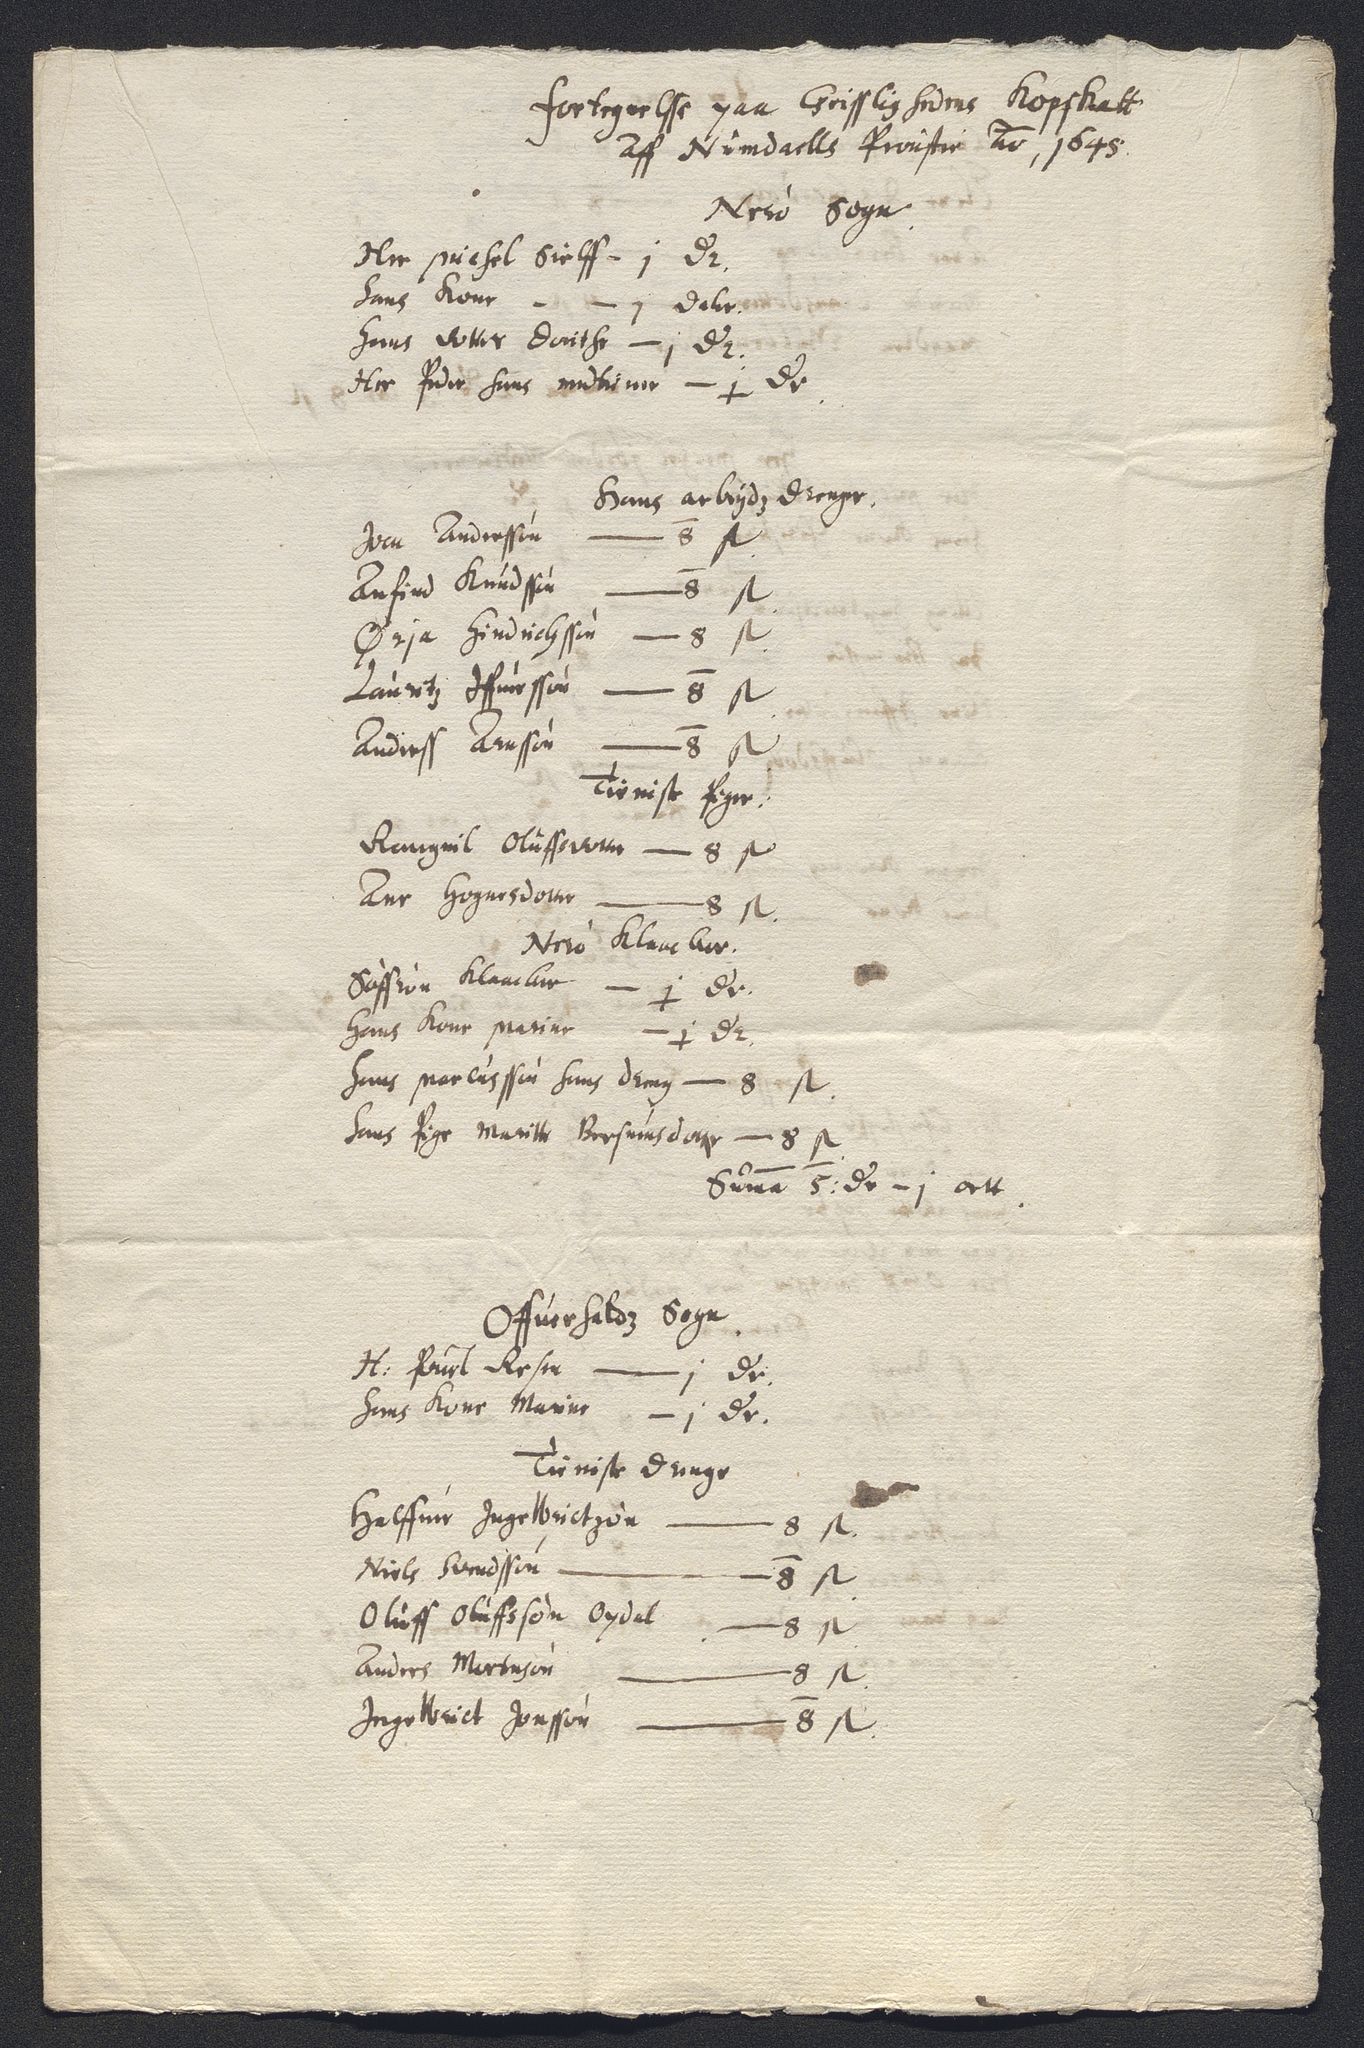 Fortegnelsse paa Geistlighedens Kopskatt
Aff Numdaells Proustie Ao, 1645.
Nerö Sogn.
Her Michel Sielff - j Dr.
Hans Kone - - j Daler.
Hans dotter Dorithe - j Dr.
Her Peder hans medtiener - j Dr.
Hans arbeydz Drenger.
Joen Anderssön - 8 sk.
Anfind Knudssön - 8 sk.
Ørja Hindrichssön - 8 sk.
Lauretz Iffuerssön - 8 sk.
Anderss Arnssön - 8 sk
Tieniste Piger.
Rangnil Oluffsdotter - 8 sk
Ane Hognesdotter - 8 sk.
Nerö Klaacker.
Söffren Klaacker - j Dr.
Hans Kone Marine - j Dr.
Hans Marcussön hans dreng - 8 sk.
Hans Pige Maritte Bersuensdotter - 8 sk
Suma 5: Dr - j ortt
Offuerhaldz Sogn.
H: Pouel Resen - j Dr.
Hans Kone Marine - j Dr.
Tieniste Drenge
Halffuer Ingebrictzön - 8 sk.
Niels Suendssön - 8 sk
Oluff Oluffssön Oydal - 8 sk
Anders Mortensön - 8 sk.
Ingebrict Jonssön - 8 sk.